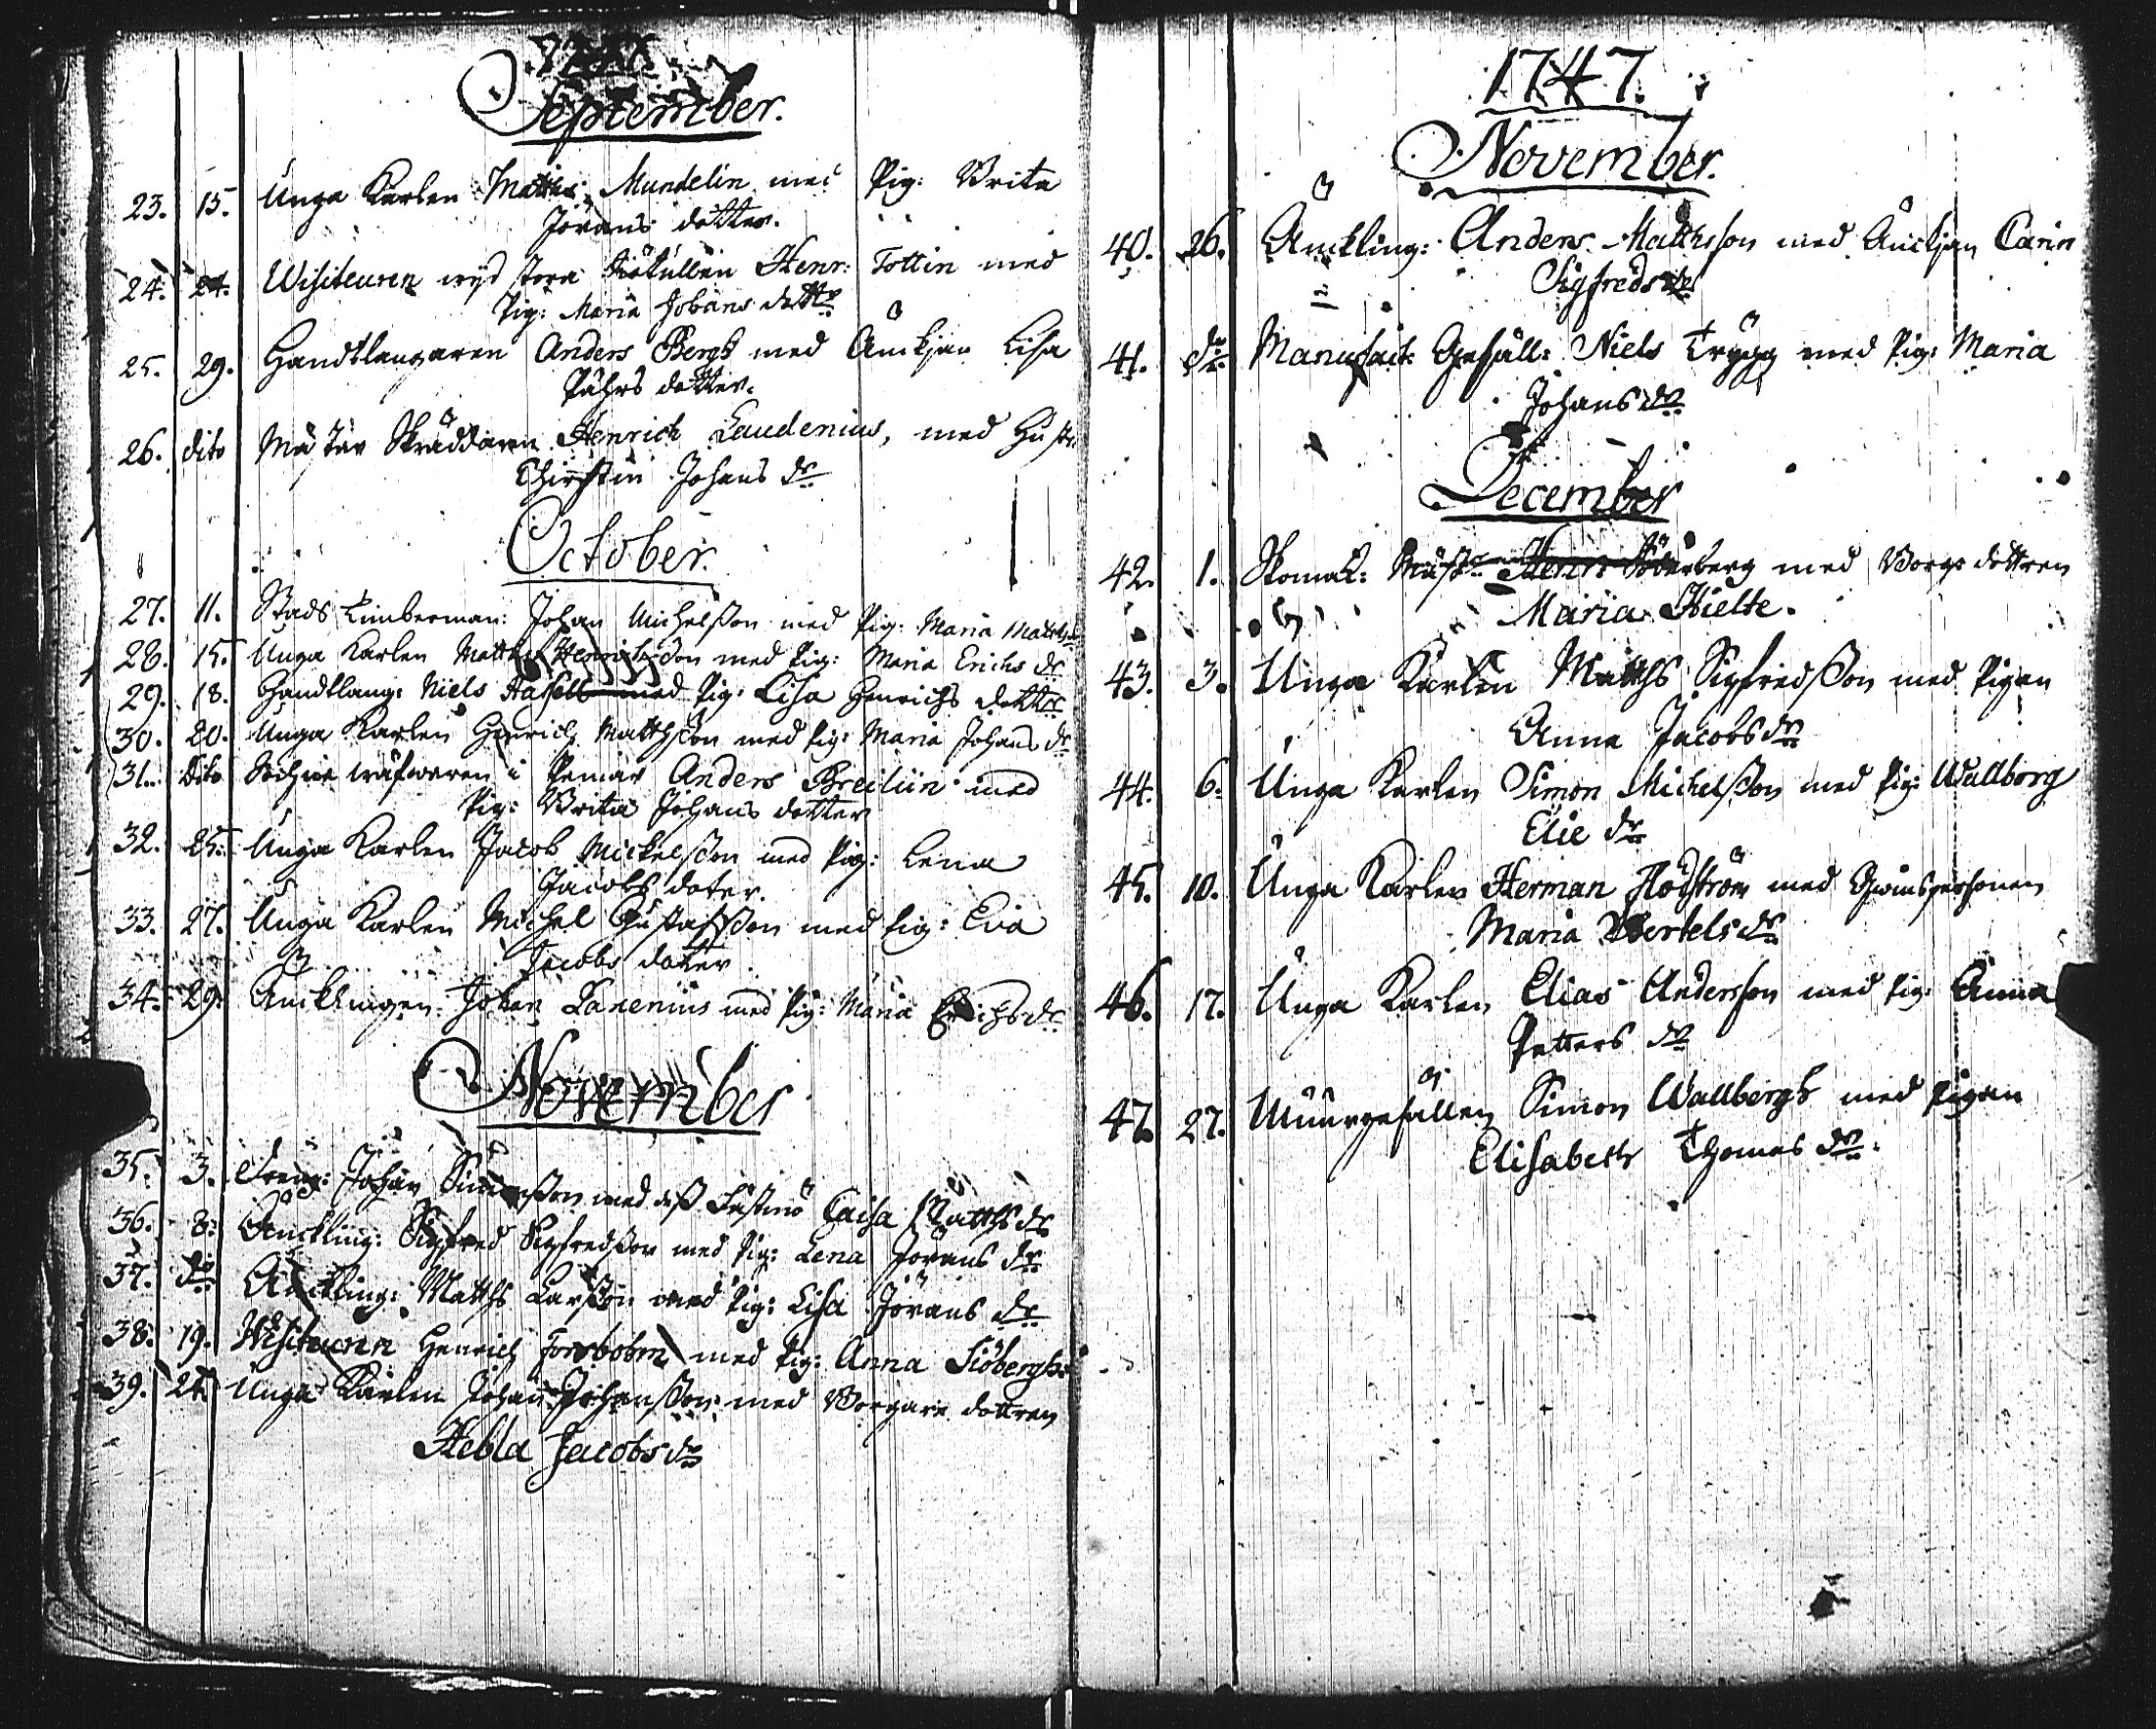 September.
23. 15. Unga Karlen Matths Mundelin med Pig: Brita
Jörans dotter.
24. 24. Visiteuren wyd stora Siötullen Henr: Tottin med
Pig: Maria Johans dottr
25. 29. Handtlangaren Anders Bergh med Änckjan Lisa
Påhrs dotter.
26. dito Mästar Skräddaren Henrich Laudenius, med Hust
Chirstin Johans dr
October.
27. 11. Stads Timberman: Johan Michelsson med Pig: Maria Matts
28. 15. Unga Karlen Matths Henrichsson med Pig: Maria Erichs dr
29. 18. Handtlang: Niels Hassell med Pig: Lisa Henrichs dottr
30. 20. Unga Karlen Henrich Matthsson med Pig: Maria Johans dr
31. Dito wäfwaren i Pemar Anders Breilin med
Pig: Brita Johans dotter
32. 25. Unga Karlen Jacob Mickelsson med Pig: Lena
Jacobs doter.
33. 27. Unga Karlen Michel Gustafsson med Pig: Eva
Jacobs doter.
34. 29. Äncklingen: Johan Lanenius med Pig: Maria Erichs dr
November
35. 3. Dreng: Johan Simonsson med dess Fästmö Caisa Matths dr
36. 8. Änckling: Sigfred Sigfredsson med Pig: Lena Jörans dr
37. do Änckling: Matths Larsson med Pig: Lisa Jörans dr
38. 19. Visiteuren Henrich Forsbohm med Pig: Anna Siöbergh
39. 24. Unga Karlen Johan Johansson med Borgare dottren
Hebla Jacobs dr
1747.
November.
40. 26. Änckling: Anders Matthsson med Änckjan Carin
Sigfreds dr
41. do Manufact: Gesäll: Niels Trygg med Pig: Maria
Johans dr
December
42. 1. Skomak: Mäst: Henr: Söderberg med Borg: dottren
Maria Hielte.
43. 3. Unga Karlen Matths Sigfredsson med Pigan
Anna Jacobs dr
44. 6. Unga Karlen Simon Michelsson med Pig: Wallborg
Elie dr
45. 10. Unga Karlen Herman Flodström med Qwinspersonen
Maria Bertels dr
46. 17. Unga Karlen Elias Andersson med Pig: Anna
Petters dr
47. 27. Muurgesällen Simon Wallbergh med Pigan
Elisabeth Thomas dr.